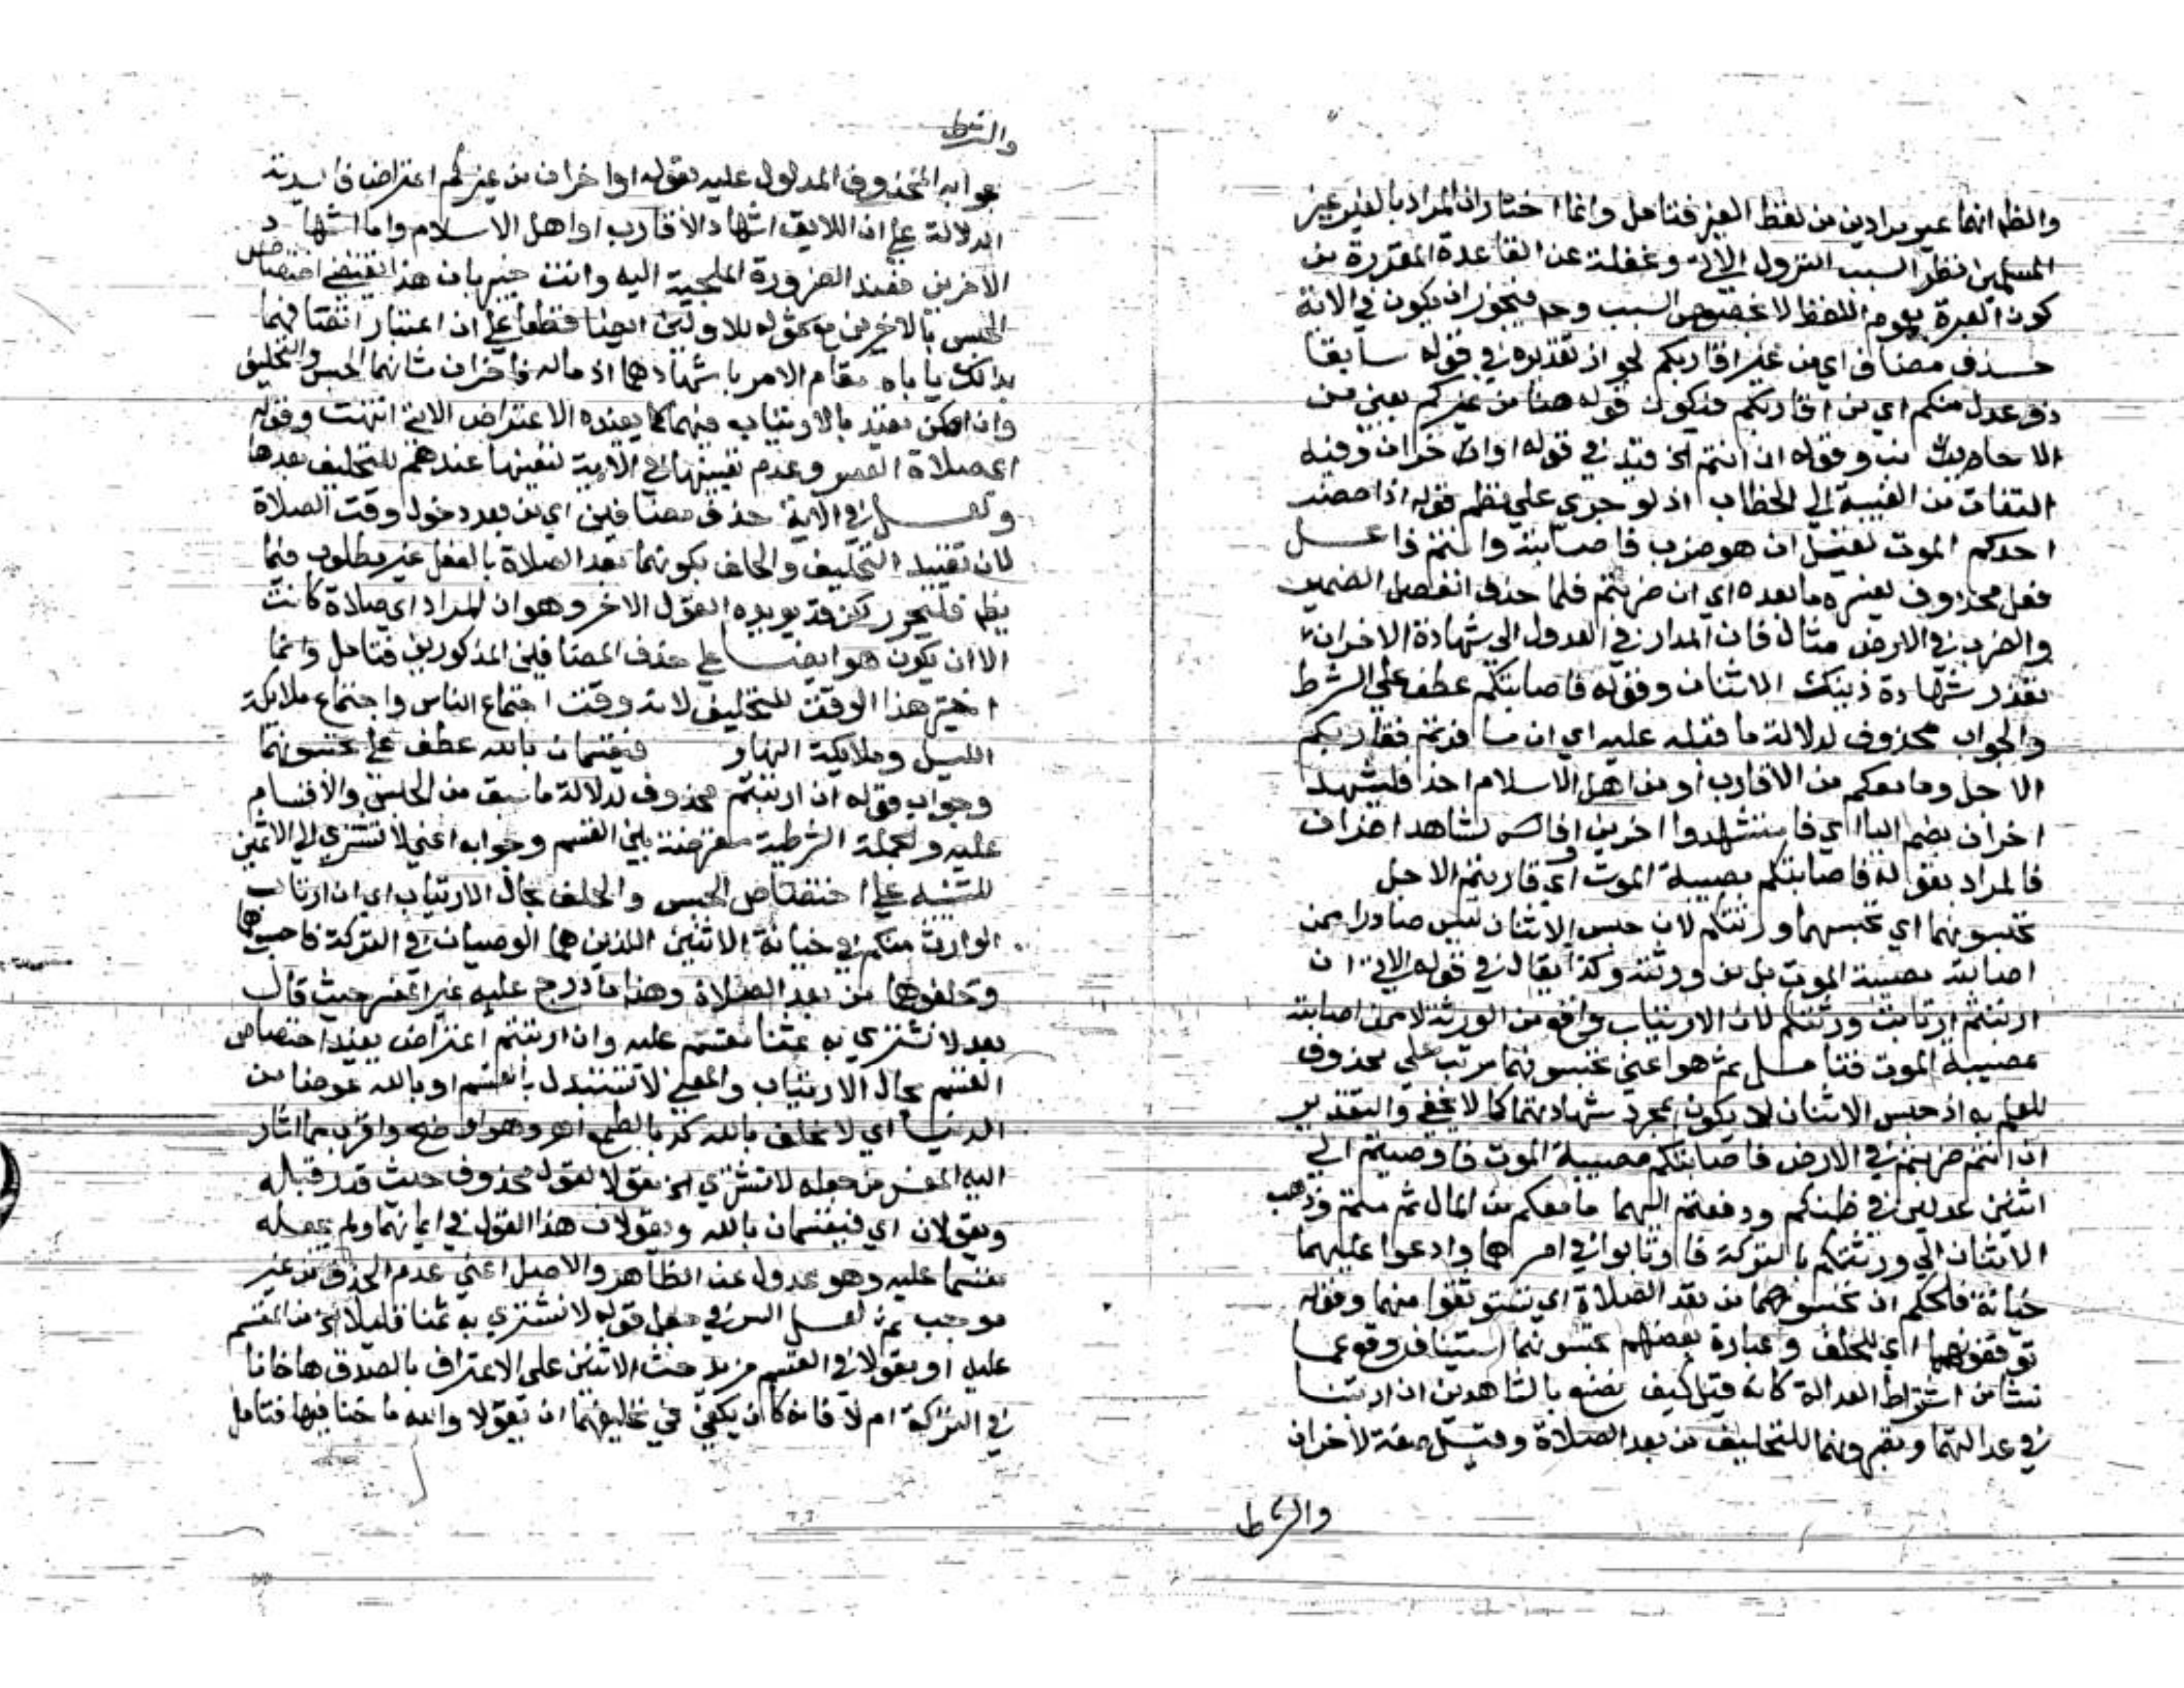 والظ انهما غير مرادين من لفظ الغير فتامل وانما اختار ان المراد بالغير غير
المسلمين نظرا لسبب النزول الاتي وغفلة عن القاعدة المقررة من
كون العبرة بعموم اللفظ لا بخصوص السبب وح فيجوز ان يكون في الاية
حذف مضاف اي من غير اقاربكم لجواز تقديره في قوله سابقا
ذوى عدل منكم اي من اقاربكم فيكون قوله هنا من غيركم يعني من
الاجانب وقوله ان انتم الخ قيد في قوله او اخران وفيه
التفات من الغيبة الى الخطاب اذ لو جرى على نظم قوله اذا حضر
احدكم الموت لقيل ان هو ضرب فاصابته وانتم فاعل
فعل محذوف يفسره ما بعده اي ان ضربتم فلما حذف انفصل الضمير
والضرب في الارض مثال فان المدار في العدول الى شهادة الاخران
تعذر شهادة ذينك الاثنان وقوله فاصابتكم عطف على الشرط
والجواب محذوف لدلالة ما قبله عليه اي ان سافرتم فقاربكم
الاجل وما معكم من الاقارب او من اهل الاسلام احد فليشهد
اخران بضم اليا اي فاستشهدوا اخرين او فالشاهد اخران
فالمراد بقوله فاصابتكم مصيبة الموت اي قاربتم الاجل
تحبسونهما اي تحبسهما ورثتكم لان حبس الاثنان ليس صادرا ممن
اصابته مصيبة الموت بل من ورثته وكذا يقال في قوله الاتي ان
ارتبتم ارتابت ورثتكم لان الارتياب واقع من الورثة لا ممن اصابته
مصيبة الموت فتامل ثم هو اعني تحبسونهما مرتب على محذوف
للعلم به اذ حبس الاثنان لا يكون بمجرد شهادتهما كما لا يخفى والتقدير
ان انتم ضربتم في الارض فاصابتكم مصيبة الموت فاوصيتم الى
اثنين عدلين في ظنكم ودفعتم اليهما ما معكم من المال ثم متم وذهب
الاثنان الى ورثتكم بالتركة فارتابوا في امرهما وادعوا عليهما
خيانة فلحكم ان تحبسوهما من بعد الصلاة اي تستوثقوا منهما وقوله
توقفونهما اي للحلف وعبارة بعضهم تحبسونهما استيناف وقوعما
نشا من اشتراط العدالة كانه قيل كيف نصنع بالشاهدين ان ارتبنا
في عدالتهما وتصبرونهما للتحليف من بعد الصلاة وقيل صفة لاخران
والشرط
والشرط
جوابه المحذوف المدلول عليه بقوله او اخران من غيركم اعتراض فايدته
الدلالة على ان اللايق اشهاد الاقارب او اهل الاسلام واما اشهاد
الاخرين فعند الضرورة الملجية اليه وانت خبير بان هذا يقتضي اختصاص
الحبس بالاخرين مع شموله للاولين ايضا قطعا على ان اعتبار اتصافهما
بذلك ياباه مقام الامر باشهادهما اذ ماله فاخران شانهما الحبس والتحليف
وان امكن تقييد بالارتياب فيهما كما يفيده الاعتراض الاتي انتهت وقوله
اي صلاة العصر وعدم تعيينها في الاية لتعينها عندهم للتحليف بعدها
ولعل في الاية حذف مضافين اي من بعد دخول وقت الصلاة
لان تقييد التحليف والحلف بكونهما بعد الصلاة بالفعل غير مطلوب فيما
يظ فليحرر لكن قد يويده القول الاخر وهو ان المراد اي صلاة كانت
الا ان يكون هو ايضا على حذف المضافين المذكورين فتامل وانما
اختير هذا الوقت للتحليف لانه وقت اجتماع الناس واجتماع ملايكة
الليل وملايكة النهار فيقسمان بالله عطف على تحبسونهما
وجواب قوله ان ارتبتم محذوف لدلالة ما سبق من الحبس والاقسام
عليه والجملة الشرطية معترضة بين القسم وجوابه اعني لا نشتري الى الاثمين
للتنبيه على اختصاص الحبس والحلف بحال الارتياب اي ان ارتاب
الوارث منكم في خيانة الاثنين اللذين هما الوصيان في التركة فاحبسوهما
وحلفوهما من بعد الصلاة وهذا ما درج عليه غير المفسر حيث قال
بعد لا نشتري به ثمنا مقسم عليه وان ارتبتم اعتراض يفيد اختصاص
القسم بحال الارتياب والمعنى لا نستبدل بالقسم او بالله عوضا من
الدنيا اي لا نحلف بالله كذبا لطمع اهـ وهو اوضح واقرب مما اشار
اليه المفسر من جعله لا نشتري الخ مقولا لقول محذوف حيث قدر قباله
ويقولان اي فيقسمان بالله ويقولان هذا القول في ايمانهما ولم يجعله
مقسما عليه وهو عدول عن الظاهر والاصل اعني عدم الحذف من غير
موجب ثم لعل السر في جعل قوله لا نشتري به ثمنا قليلا الخ من المقسم
عليه او مقولا في القسم مزيد حث الاثنين على الاعتراف بالصدق هل خانا
في التركة ام لا فانه كان يكفي في تحليفهما ان يقولا والله ما خنا فيها فتامل